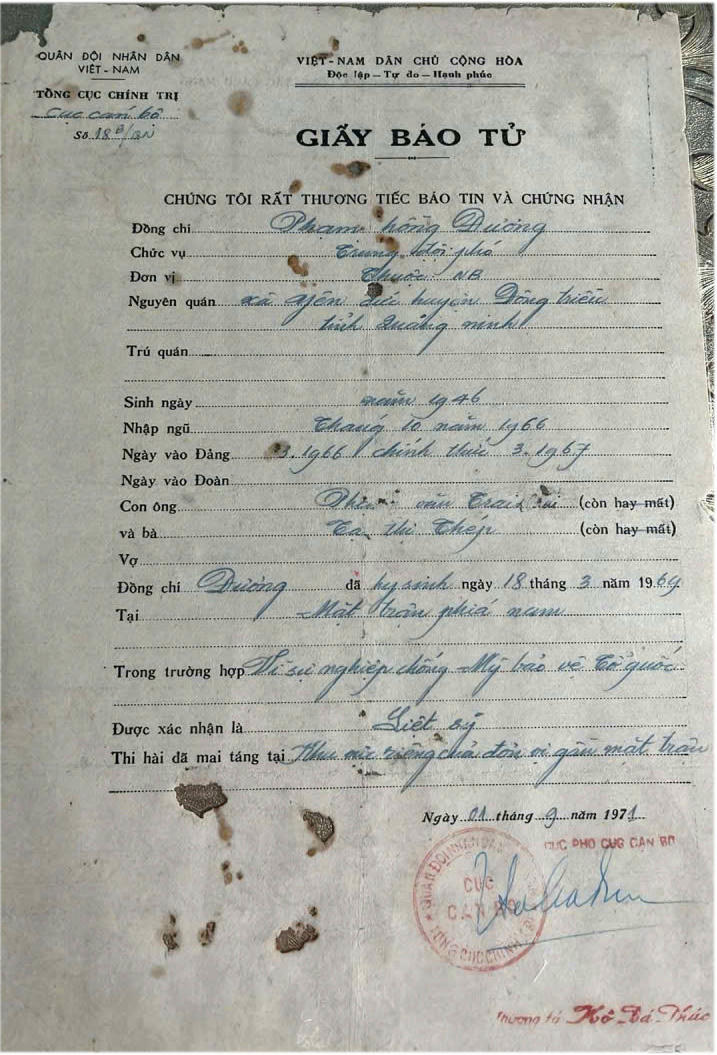 QUÂN ĐỘI NHÂN DÂN
VIỆT-NAM
TỔNG CỤC CHÍNH TRỊ
Cục cán bộ
Số 18B/QN
VIỆT-NAM DÂN CHỦ CỘNG HÒA
Độc lập – Tự do – Hạnh phúc
GIẤY BÁO TỬ
CHÚNG TÔI RẤT THƯƠNG TIẾC BÁO TIN VÀ CHỨNG NHẬN
Đồng chí Phạm hồng Dương
Chức vụ Trung đội phó
Đơn vị Thuộc NB
Nguyên quán xã yên đức huyện Đông triều
tỉnh Quảng ninh
Trú quán
Sinh ngày năm 1946
Nhập ngũ Tháng 10 năm 1966
Ngày vào Đảng 3.1966 chính thức 3.1967
Ngày vào Đoàn
Con ông văn Trai (còn hay mất)
và bà Tạ thị Thép (còn hay mất)
Vợ
Đồng chí Dương đã hy sinh ngày 18 tháng 3 năm 1969
Tại Mặt trận phiá nam
Trong trường hợp Vì sự nghiệp chống Mỹ bảo vệ Tổ quốc
Được xác nhận là Liệt sỹ
Thi hài đã mai táng tại Khu vực riêng của đơn vị gần mặt trận
Ngày 01 tháng 9 năm 1971
CỤC PHÓ CỤC CÁN BỘ
QUÂN ĐỘI NHÂN DÂN
CỤC
CÁN BỘ
TỔNG CỤC CHÍNH
Thượng tá Hồ Bá Phúc